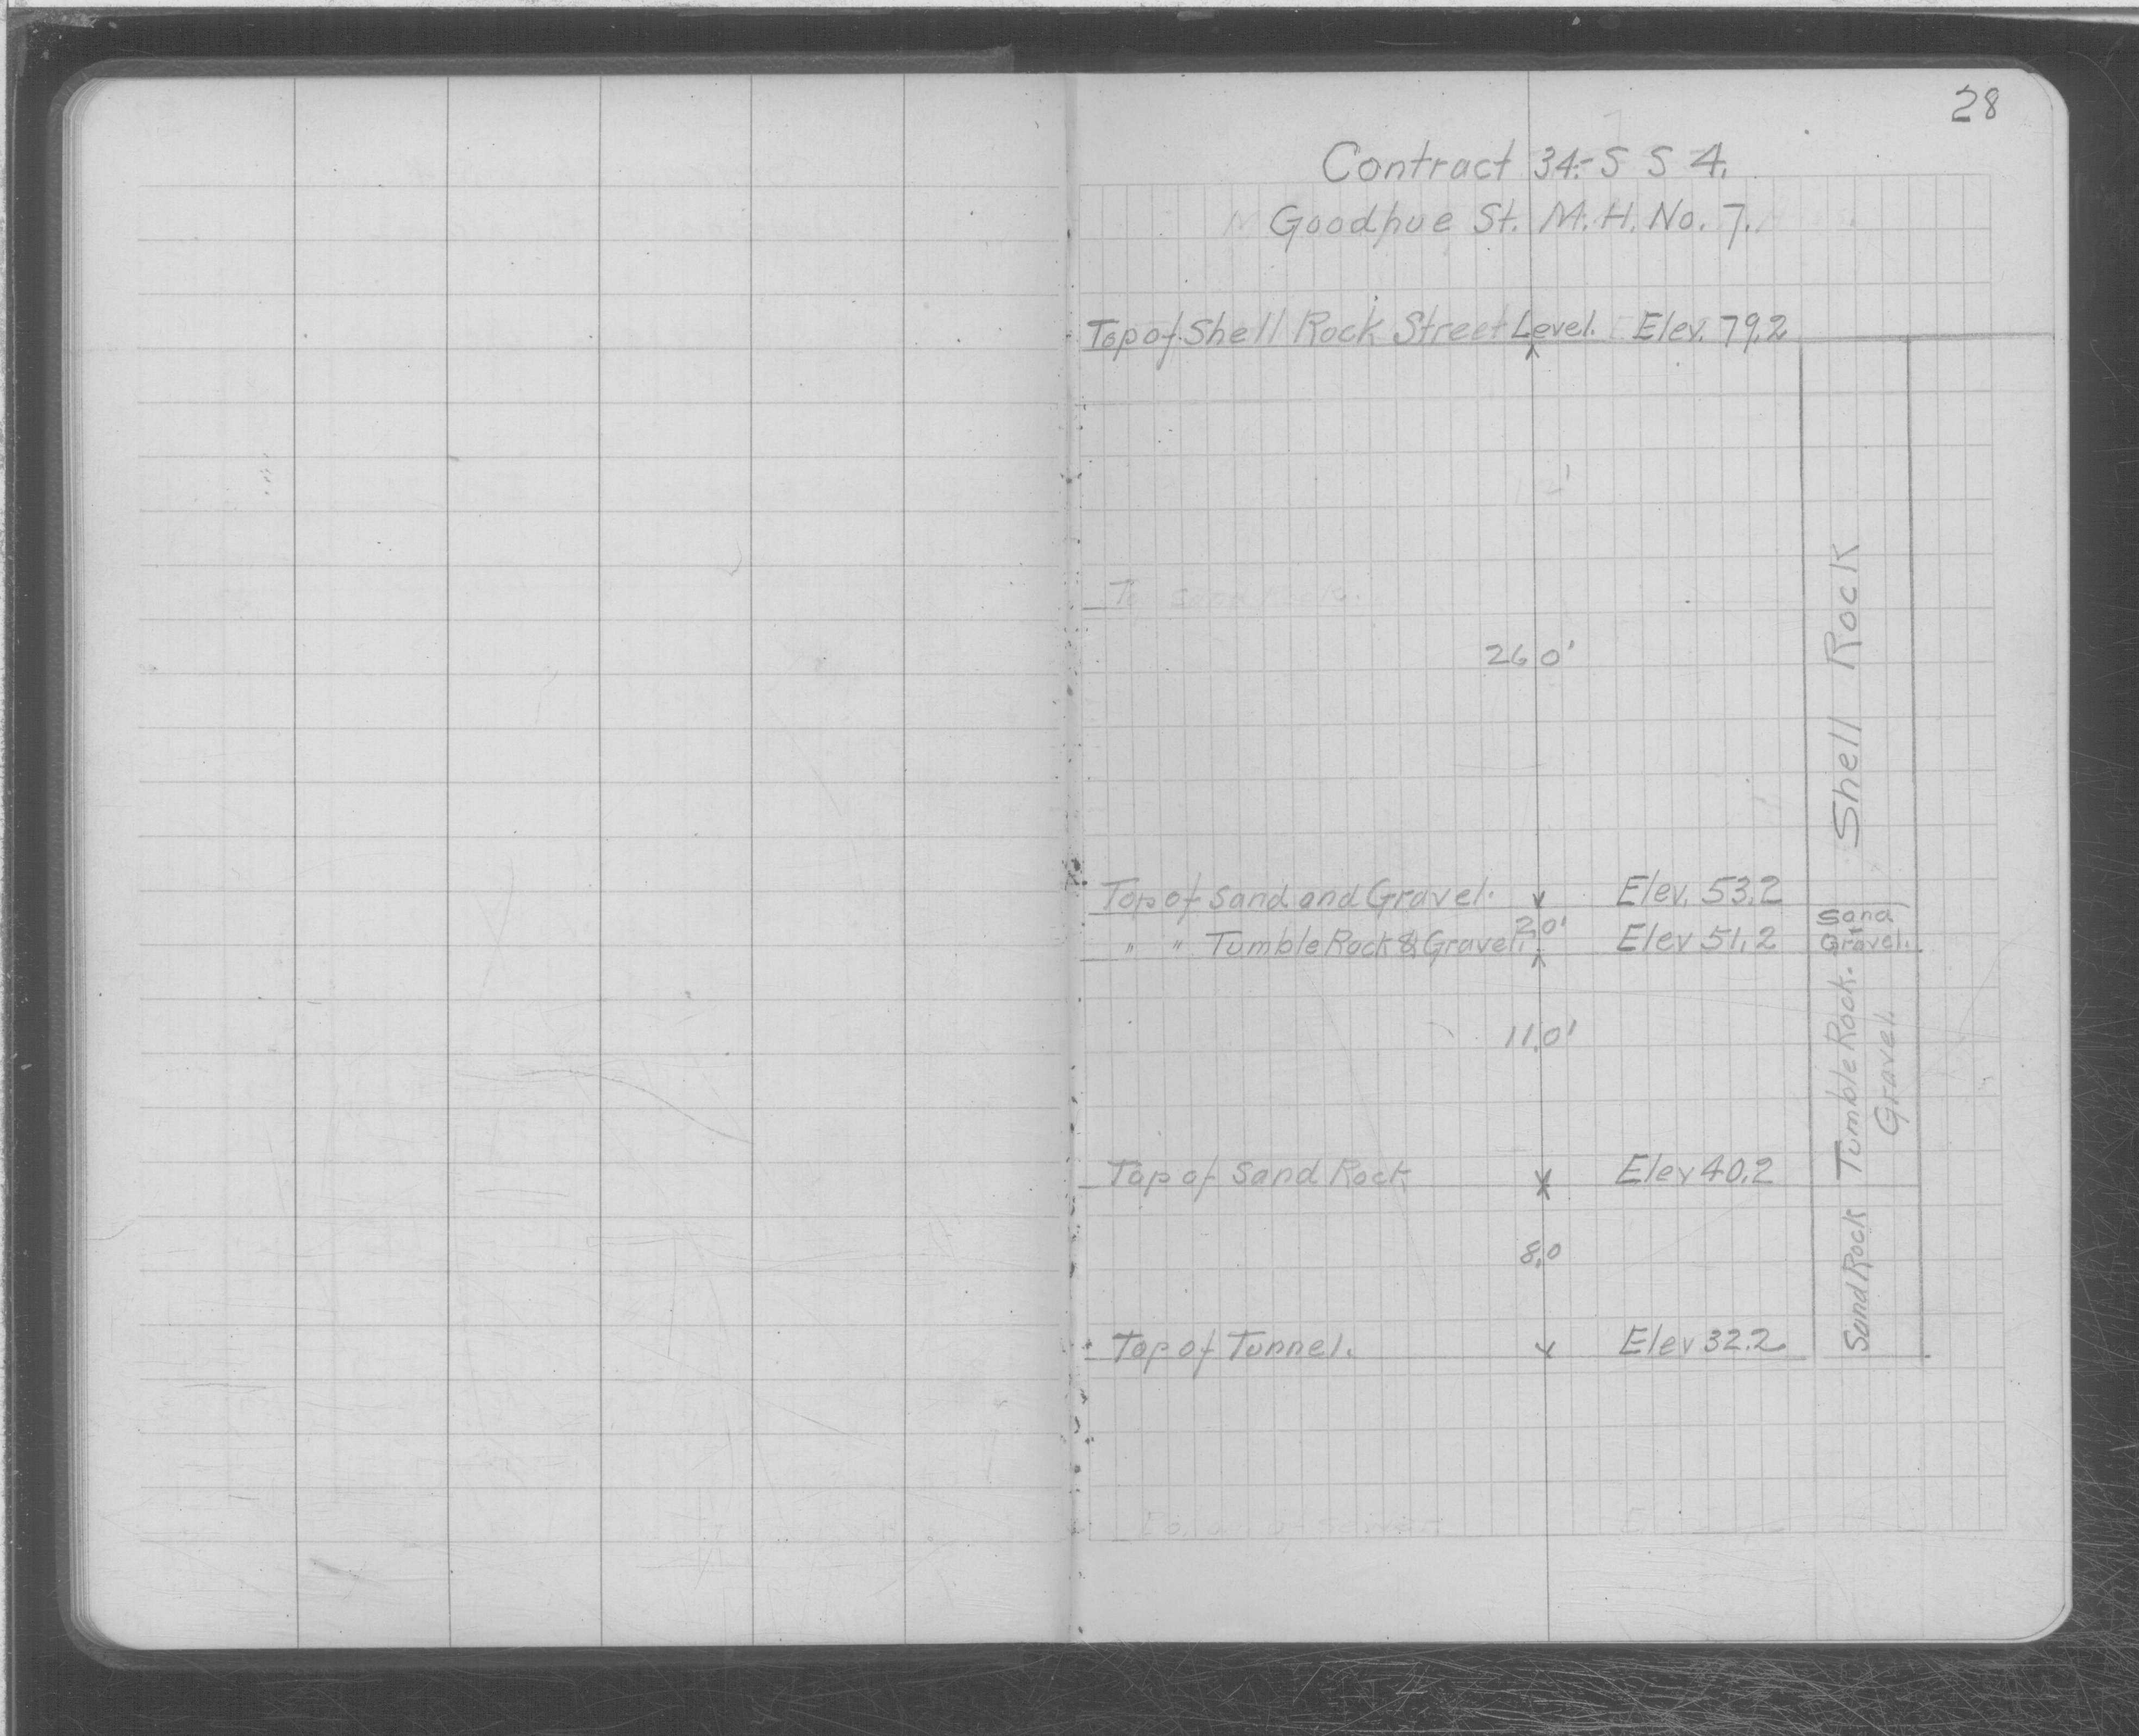 28
Contract 34-S S 4.
Goodhue St. M.H. No. 7.
Top of Shell Rock Street Level. Elev. 79.2
26.0'
Shell Rock
Top of Sand and Gravel. Elev. 53.2
2.0'
Sand
" " Tumble Rock & Gravel. Elev 51.2
Gravel.
11.0'
Tumble Rock.
Gravel.
Top of Sand Rock Elev 40.2
8.0
Sand Rock
Top of Tunnel. Elev 32.2